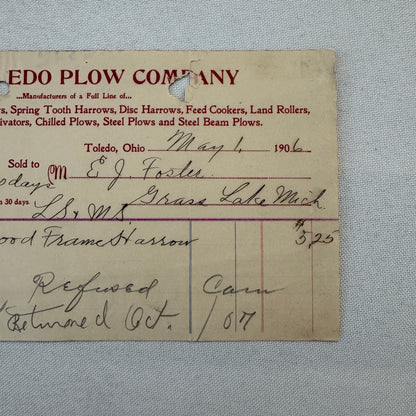 LEDO PLOW COMPANY
...Manufacturers of a Full Line of...
s, Spring Tooth Harrows, Disc Harrows, Feed Cookers, Land Rollers,
ivators, Chilled Plows, Steel Plows and Steel Beam Plows.
Toledo, Ohio May 1, 1906
Sold to M E J. Foster
days Grass Lake Mich
n 30 days LS & MS
ood Frame Harrow $5.25
Refused Cam
Returned Oct. /07